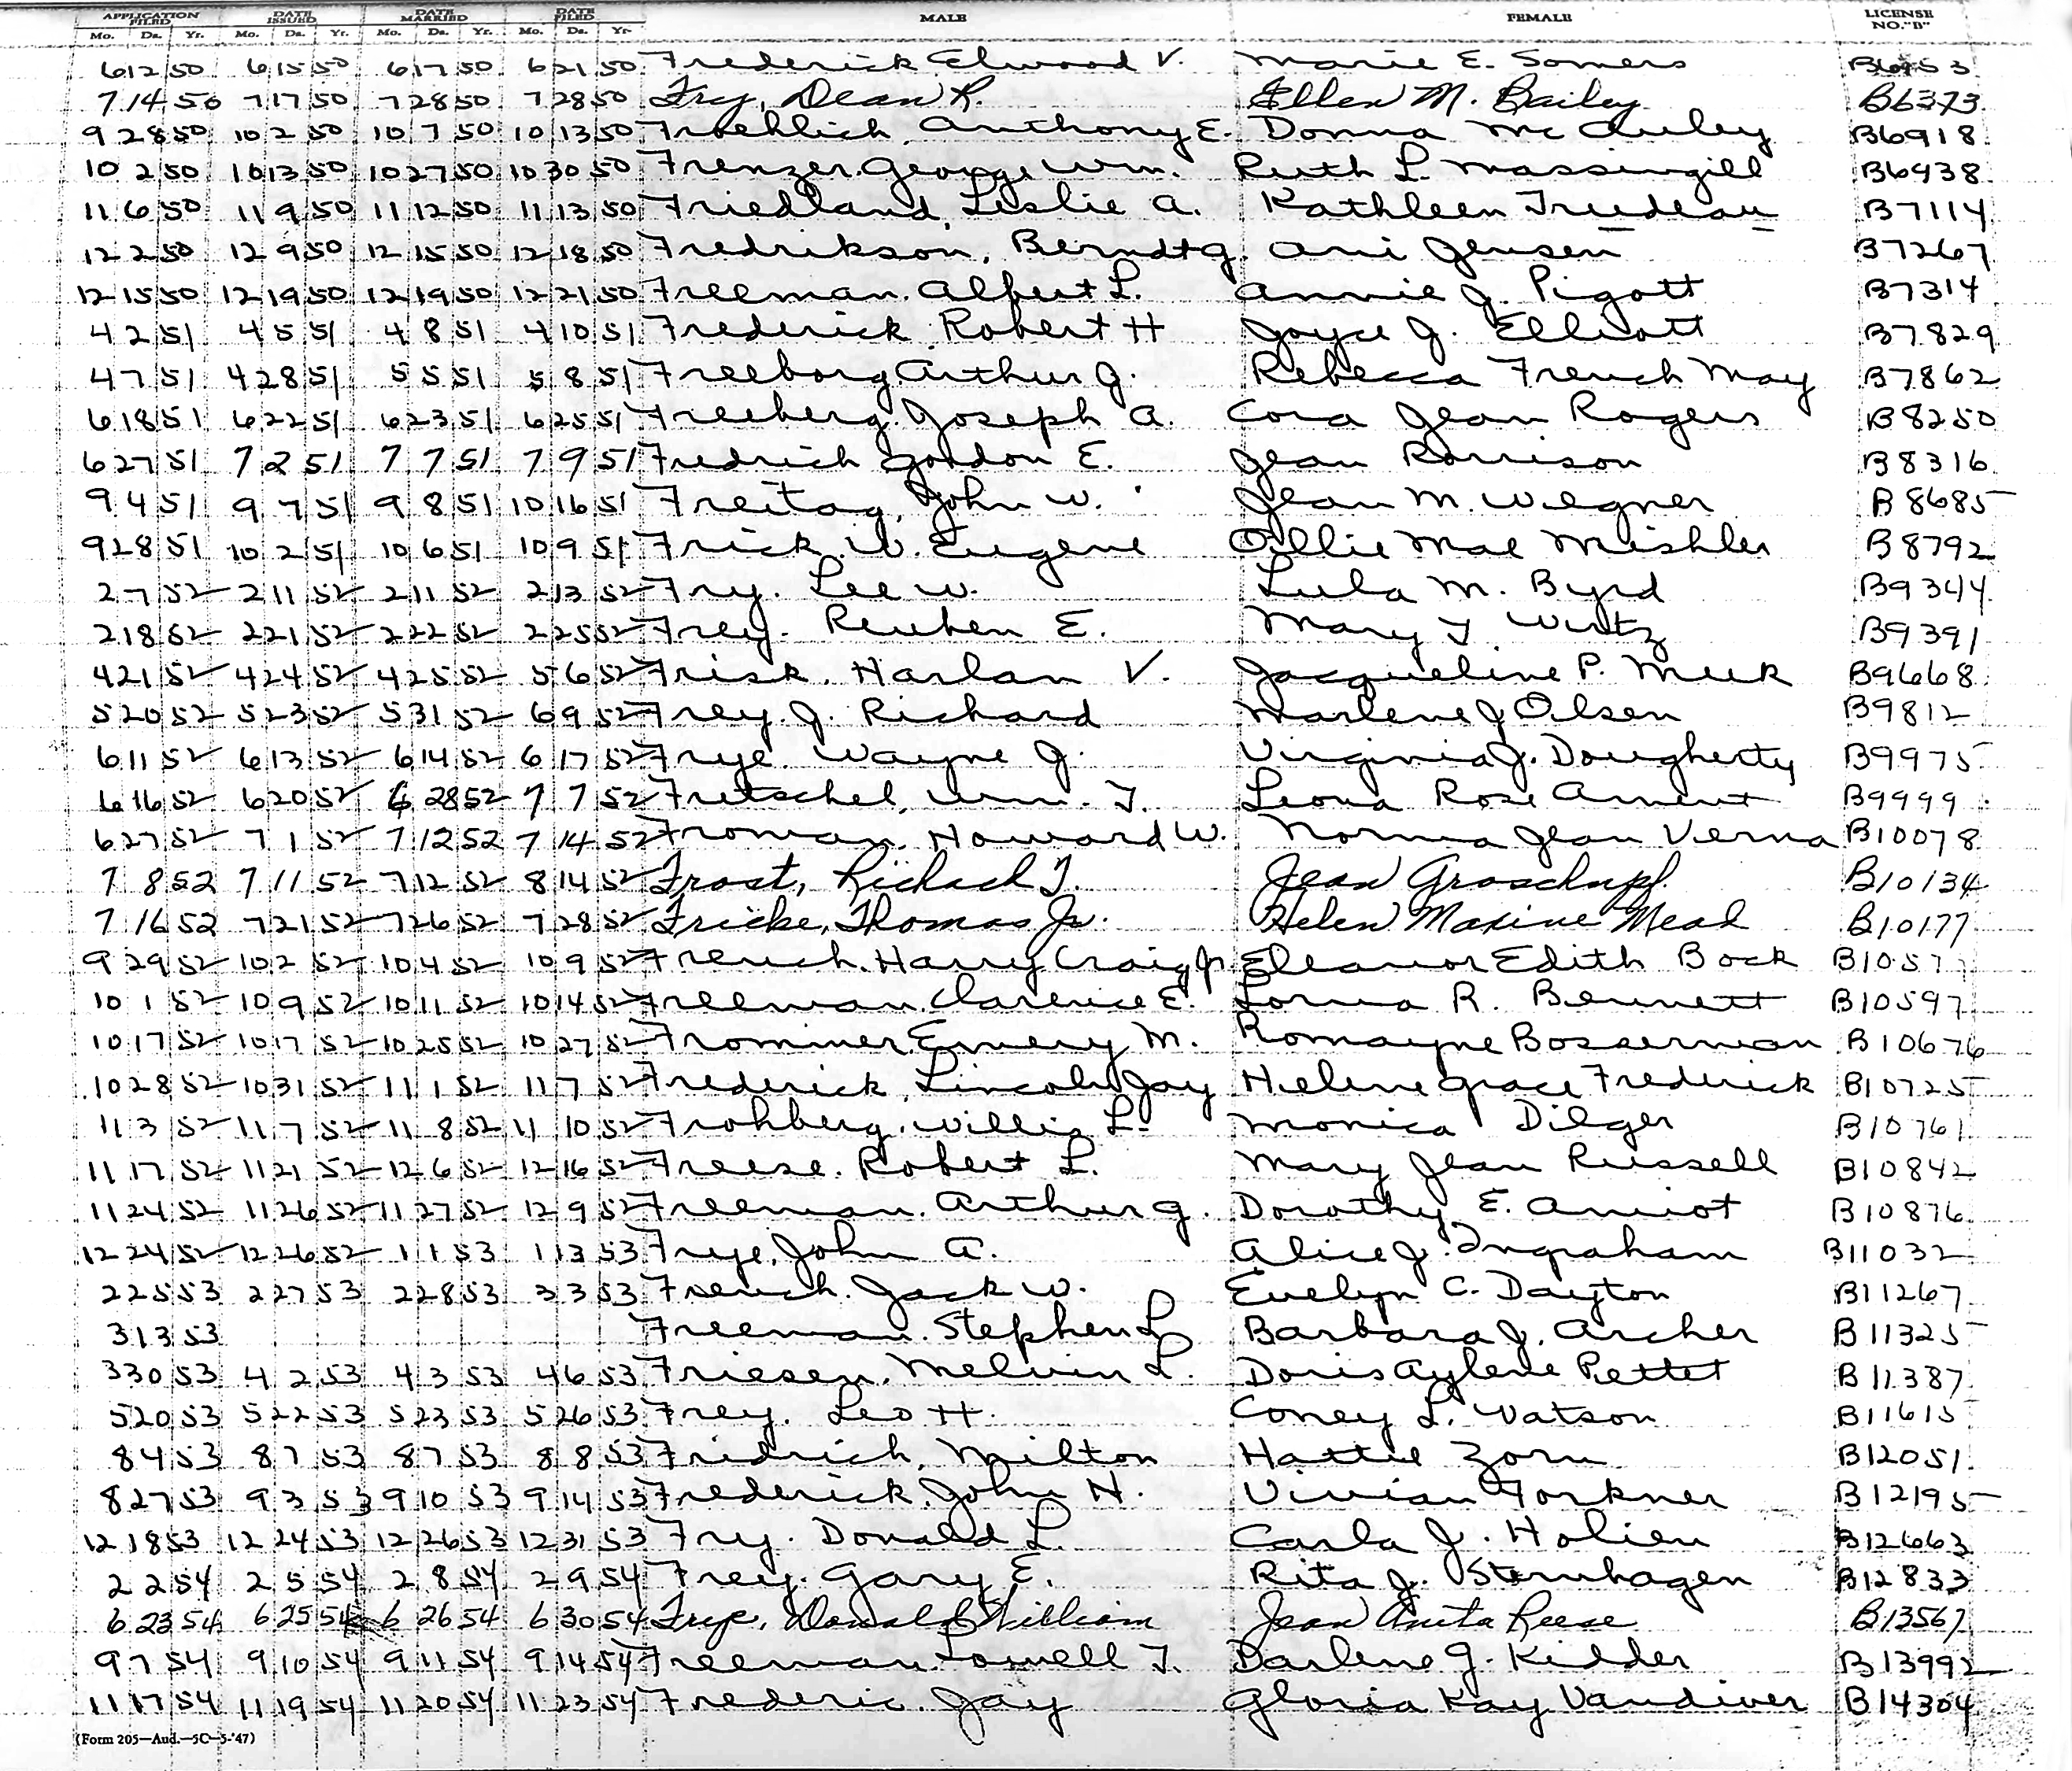 APPLICATION FILED DATE ISSUED DATE MARRIED DATE FILED MALE FEMALE LICENSE NO. "B"
Mo. Da. Yr. Mo. Da. Yr. Mo. Da. Yr. Mo. Da. Yr.
6 12 50 6 15 50 6 17 50 6 21 50 Frederick Elwood V. Marie E. Somers
7 14 50 7 17 50 7 28 50 7 28 50 Fry, Dean R. Ellen M. Bailey B6373
9 28 50 10 2 50 10 7 50 10 13 50 Froehlich, Anthony E. Donna McAuley B6918
10 2 50 10 13 50 10 27 50 10 30 50 Frenzer, George Wm. Ruth L. Massingill B6938
11 6 50 11 9 50 11 12 50 11 13 50 Friedland, Leslie A. Kathleen Trudeau B7114
12 2 50 12 9 50 12 15 50 12 18 50 Fredrikson, Berndt G. Ani Jensen B7267
12 15 50 12 19 50 12 19 50 12 21 50 Freeman, Albert L. Annie J. Pigott B7314
4 2 51 4 5 51 4 8 51 4 10 51 Frederick, Robert H Joyce J. Elliott B7829
4 7 51 4 28 51 5 5 51 5 8 51 Freeborg, Arthur J. Rebecca French May B7862
6 18 51 6 22 51 6 23 51 6 25 51 Freeberg, Joseph A. Cora Jean Rogers B8250
6 27 51 7 2 51 7 7 51 7 9 51 Fredrich Gordon E. Jean Rorrison B8316
9 4 51 9 7 51 9 8 51 10 16 51 Freitag, John W. Jean M. Wegner B8685
9 28 51 10 2 51 10 6 51 10 9 51 Frick, W. Eugene Ollie Mae Mishler B8792
2 7 52 2 11 52 2 11 52 2 13 52 Fry. Lee W. Lula M. Byrd B9344
2 18 52 2 21 52 2 22 52 2 25 52 Frey. Reuben E. Mary T Wirtz B9391
4 21 52 4 24 52 4 25 52 5 6 52 Frisk, Harlan V. Jacqueline P. Meek B9668
5 20 52 5 23 52 5 31 52 6 9 52 Frey. J. Richard Marlene J Olsen B9812
6 11 52 6 13 52 6 14 52 6 17 52 Frye. Wayne J. Virginia J. Dougherty B9975
6 16 52 6 20 52 6 28 52 7 7 52 Fretschel, Wm. T. Leona Rose Ament B9999
6 27 52 7 1 52 7 12 52 7 14 52 Froman, Howard W. Norma Jean Verna B10078
7 8 52 7 11 52 7 12 52 8 14 52 Frost, Richard T. Jean Groschupf B10134
7 16 52 7 21 52 7 26 52 7 28 52 Fricke, Thomas Jr. Helen Maxine Mead B10177
9 29 52 10 2 52 10 4 52 10 9 52 French, Harry Craig Jr Eleanor Edith Bock
10 1 52 10 9 52 10 11 52 10 14 52 Freeman, Clarence E. Lorna R. Bennett B10597
10 17 52 10 17 52 10 25 52 10 27 52 Frommer, Emery M. Romayne Bosserman B10676
10 28 52 10 31 52 11 1 52 11 7 52 Frederick, Lincoln Jay Helene Grace Frederick B10725
11 3 52 11 7 52 11 8 52 11 10 52 Frohberg, Willis L. Monica Dilger B10761
11 17 52 11 21 52 12 6 52 12 16 52 Freese. Robert L. Mary Jean Russell B10842
11 24 52 11 26 52 11 27 52 12 9 52 Freeman, Arthur G. Dorothy E. Amiot B10876
12 24 52 12 26 52 1 1 53 1 13 53 Frye, John A. Alice J. Ingraham B11032
2 25 53 2 27 53 2 28 53 3 3 53 French. Jack W. Evelyn C. Dayton B11267
3 13 53 Freeman. Stephen L Barbara J. Archer B11325
3 30 53 4 2 53 4 3 53 4 6 53 Friesen, Melvin L. Doris Aylene Pettet B11387
5 20 53 5 22 53 5 23 53 5 26 53 Frey. Leo H. Coney L. Watson B11615
8 4 53 8 7 53 8 7 53 8 8 53 Fridrich, Milton Hattie Zorn B12051
8 27 53 9 3 53 9 10 53 9 14 53 Frederick, John H. Vivian Forkner B12195
12 18 53 12 24 53 12 26 53 12 31 53 Fry. Donald L. Carla J. Holien B12663
2 2 54 2 5 54 2 8 54 2 9 54 Frey. Gary E. Rita J. Sternhagen B12833
6 23 54 6 25 54 6 26 54 6 30 54 Frye, Donald William Jean Anita Reese B13567
9 7 54 9 10 54 9 11 54 9 14 54 Freeman Lowell T. Darlene J. Kidder B13992
11 17 54 11 19 54 11 20 54 11 23 54 Frederic. Jay Gloria Kay Vandiver B14304
(Form 205—Aud.—5C—5-'47)